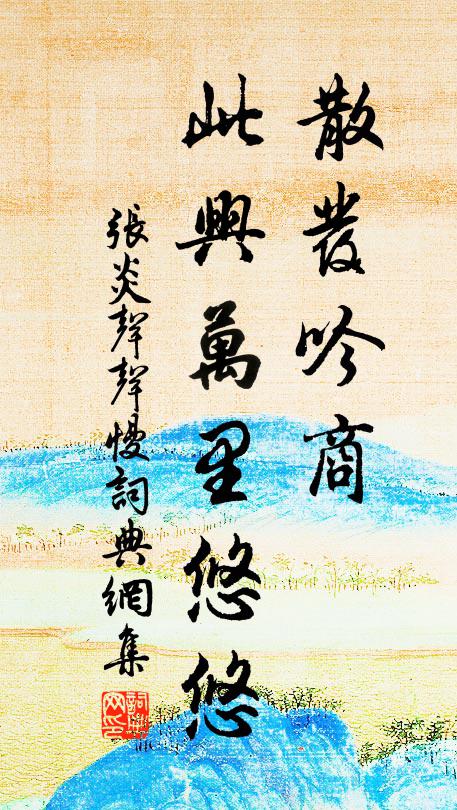 散發吟商
此興萬里悠悠
張炎聲聲慢詞典網集